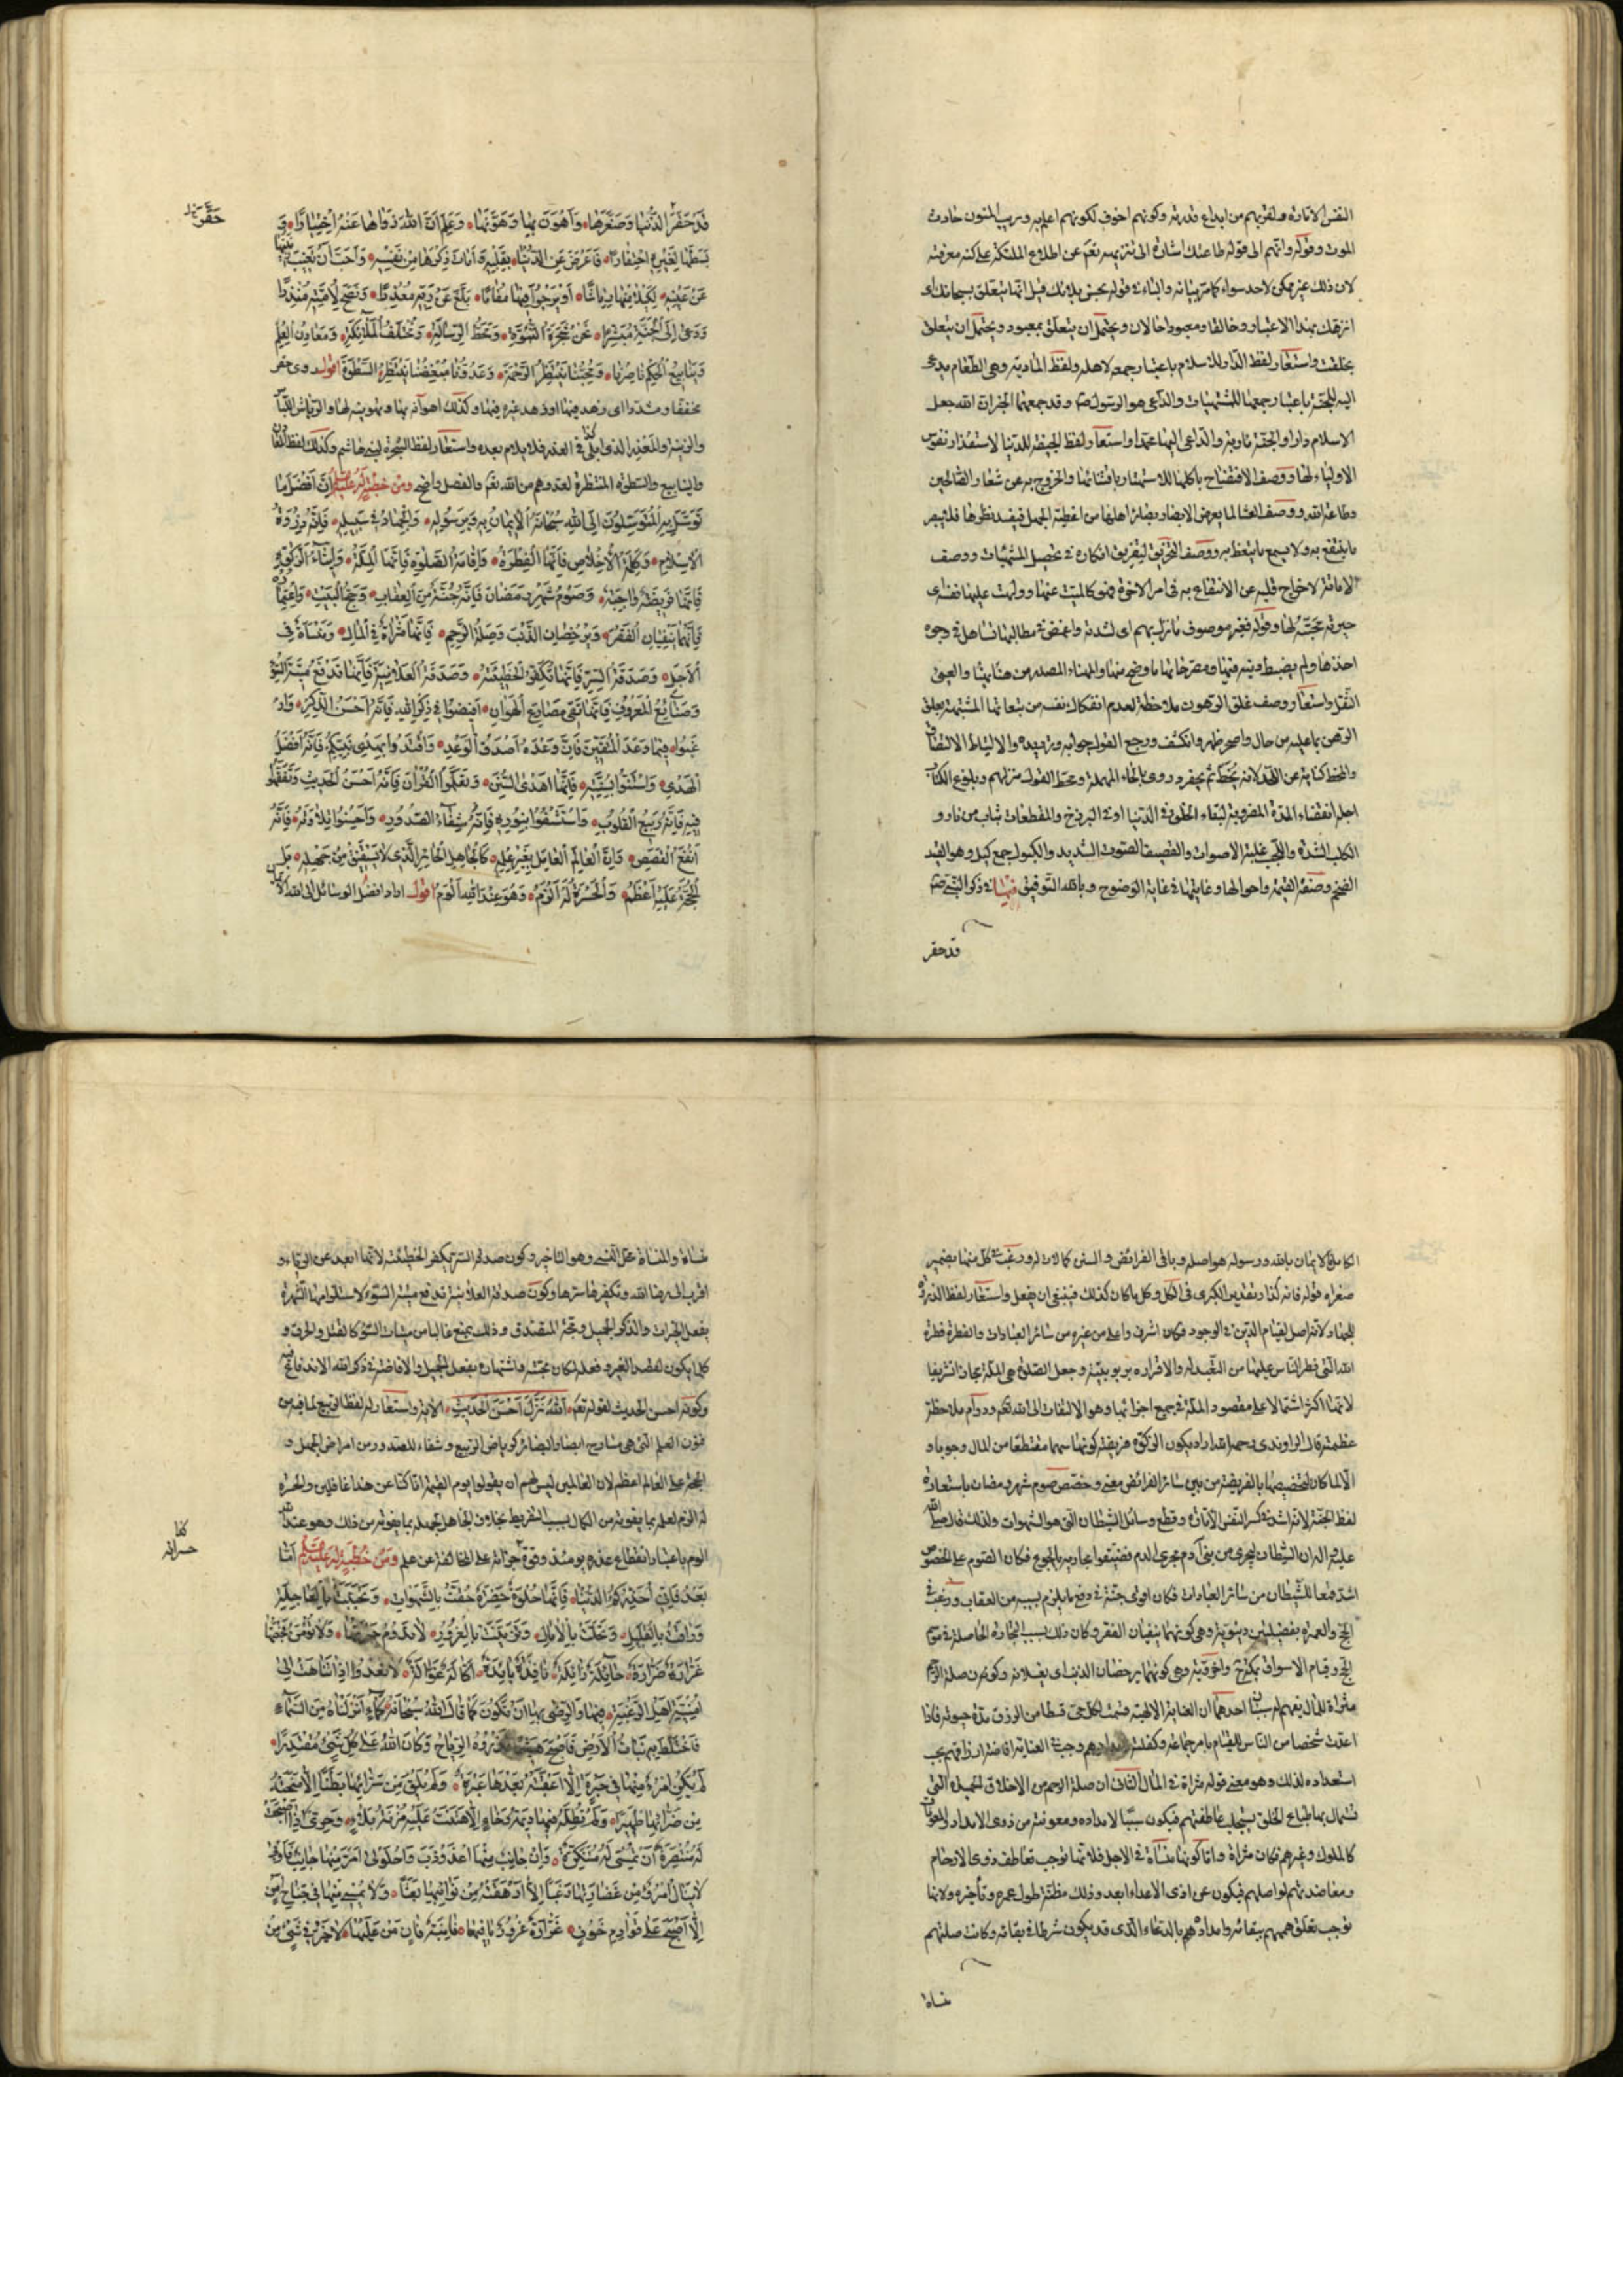 النفس الامارة ولقربهم من ابداع قدرته وكونهم اخوف لكونهم اعلم به وريب المنون حادث
الموت وقوله وانهم الى قوله طاعتك اشارة الى تنزيهه تعم عن اطلاع الملائكة على كنه معرفته
لان ذلك غير ممكن لاحد سواه كما مر بيانه والباء في قوله بحسن بلائك قيل انما يتعلق بسبحانك اى
انزهك بهذا الاعتبار وخالقا ومعبودا حالان ويحتمل ان يتعلق بمعبود ويحتمل ان يتعلق
بخلقت واستعار لفظ الدار للاسلام باعتبار جمعه لاهله ولفظ المادبة وهى الطعام يدعى
اليه للجنة باعتبار جمعها للمشتهيات والداعى هو الرسول ص وقد جمعهما الخبر ان الله جعل
الاسلام دارا والجنة مادبة والداعى اليها محمدا واستعار لفظ الجيفة للدنيا لاستقذار نفوس
الاولياء لها ووصف الافتضاح باكلها للاستهتار باقتنائها والخروج به عن شعار الصالحين
وطاعة الله ووصف العشا لما يعرض لابصار بصائر اهلها من اغطية الجهل فيفسد نظرها فلا يبصر
ما ينتفع به ولا يسمع ما يتعظ به ووصف التخريق لتفريق افكاره في تحصيل المشتهيات ووصف
الاماتة لاخراج قلبه عن الانتفاع به في امر الاخرة فهو كالميت عنها وولهت عليها نفسه اى
حيرته بمحبته لها وقوله فغير موصوف ما نزل بهم اى لشدته واغمض في مطالبها تساهل في وجوه
اخذها ولم يضبط دينه فيها ومصرحاتها ما وضح منها والمهناء المصدر من هنا يهنا والعبئ
الثقل واستعار وصف غلق الرهون ملاحظة لعدم انفكاك نفسه من تبعاتها المشبهة بغلق
الرهن بما عليه من حال واصحر ظهر وانكشف ورجع القول جوابه وترديده والالتياط الالتصاق
والمخط كناية عن اللحد لانه يخط ثم يحفر وروى بالحاء المهملة ومحط القول منزلهم وبلوغ الكتاب
اجله انقضاء المدة المضروبة لبقاء الخلق في الدنيا او في البرزخ والمقطعات ثياب من نار و
الكلب الشدة واللجب غلبة الاصوات والقصيف الصوت الشديد والكبول جمع كبل وهو القيد
الضخم وصفة القيمة واحوالها وغايتها في غاية الوضوح وبالله التوفيق منها في ذكر النبي ص
قد حقر
قَدْ حَقَّرَ الدُّنْيَا وَصَغَّرَهَا وَاَهْوَنَ بِهَا وَهَوَّنَهَا وَعَلِمَ اَنَّ اللهَ زَوَاهَا عَنْهُ اخْتِيَارًا وَ
بَسَطَهَا لِغَيْرِهِ احْتِقَارًا فَاَعْرَضَ عَنِ الدُّنْيَا بِقَلْبِهِ وَاَمَاتَ ذِكْرَهَا مِنْ نَفْسِهِ وَاَحَبَّ اَنْ تَغِيبَ زِينَتُهَا
عَنْ عَيْنِهِ لِكَيْلَا يَتَّخِذَ مِنْهَا رِيَاشًا اَوْ يَرْجُوَ فِيهَا مُقَامًا بَلَّغَ عَنْ رَبِّهِ مُعْذِرًا وَنَصَحَ لِاُمَّتِهِ مُنْذِرًا
وَدَعَى اِلَى الْجَنَّةِ مُبَشِّرًا نَحْنُ شَجَرَةُ النُّبُوَّةِ وَمَحَطُّ الرِّسَالَةِ وَمُخْتَلَفُ الْمَلَائِكَةِ وَمَعَادِنُ الْعِلْمِ
وَيَنَابِيعُ الْحِكَمِ نَاصِرُنَا وَمُحِبُّنَا يَنْتَظِرُ الرَّحْمَةَ وَعَدُوُّنَا وَمُبْغِضُنَا يَنْتَظِرُ السَّطْوَةَ اقول روى حقر
مخففا ومشددا اى زهد فيها او زهد غيره فيها وكذلك اهوانه بها وتهوينه لها والرياش اللباس
والزينة والمعذر الذى ابلى في العذر فلا يلام بعده واستعار لفظ الشجرة لبنى هاشم وكذلك لفظ المعادن
والينابيع والسطوة المنتظرة لعدوهم من الله تعم والفصل واضح ومن خطبة له عليه السلم اِنَّ اَفْضَلَ مَا
تَوَسَّلَ بِهِ الْمُتَوَسِّلُونَ اِلَى اللهِ سُبْحَانَهُ الْاِيمَانُ بِهِ وَبِرَسُولِهِ وَالْجِهَادُ فِي سَبِيلِهِ فَاِنَّهُ ذِرْوَةُ
الْاِسْلَامِ وَكَلِمَةُ الْاِخْلَاصِ فَاِنَّهَا الْفِطْرَةُ وَاِقَامَةُ الصَّلٰوةِ فَاِنَّهَا الْمِلَّةُ وَاِيتَاءُ الزَّكٰوةِ
فَاِنَّهَا فَرِيضَةٌ وَاجِبَةٌ وَصَوْمُ شَهْرِ رَمَضَانَ فَاِنَّهُ جُنَّةٌ مِنَ الْعِقَابِ وَحَجُّ الْبَيْتِ وَاعْتِمَارُهُ
فَاِنَّهُمَا يَنْفِيَانِ الْفَقْرَ وَيَرْحَضَانِ الذَّنْبَ وَصِلَةُ الرَّحِمِ فَاِنَّهَا مَثْرَاةٌ فِي الْمَالِ وَمَنْسَاةٌ فِي
الْاَجَلِ وَصَدَقَةُ السِّرِّ فَاِنَّهَا تُكَفِّرُ الْخَطِيئَةَ وَصَدَقَةُ الْعَلَانِيَةِ فَاِنَّهَا تَدْفَعُ مِيتَةَ السُّوْءِ
وَصَنَائِعُ الْمَعْرُوفِ فَاِنَّهَا تَقِي مَصَارِعَ الْهَوَانِ اَفِيضُوا فِي ذِكْرِ اللهِ فَاِنَّهُ اَحْسَنُ الذِّكْرِ وَارْ
غَبُوا فِيمَا وَعَدَ الْمُتَّقِينَ فَاِنَّ وَعْدَهُ اَصْدَقُ الْوَعْدِ وَاقْتَدُوا بِهَدْىِ نَبِيِّكُمْ فَاِنَّهُ اَفْضَلُ
الْهَدْىِ وَاسْتَنُّوا بِسُنَّتِهِ فَاِنَّهَا اَهْدَى السُّنَنِ وَتَعَلَّمُوا الْقُرْاٰنَ فَاِنَّهُ اَحْسَنُ الْحَدِيثِ وَتَفَقَّهُوا
فِيهِ فَاِنَّهُ رَبِيعُ الْقُلُوبِ وَاسْتَشْفُوا بِنُورِهِ فَاِنَّهُ شِفَاءُ الصُّدُورِ وَاَحْسِنُوا تِلَاوَتَهُ فَاِنَّهُ
اَنْفَعُ الْقَصَصِ وَاِنَّ الْعَالِمَ الْعَامِلَ بِغَيْرِ عِلْمِهِ كَالْجَاهِلِ الْحَائِرِ الَّذِي لَا يَسْتَفِيقُ مِنْ جَهْلِهِ بَلِ
الْحُجَّةُ عَلَيْهِ اَعْظَمُ وَالْحَسْرَةُ لَهُ اَلْزَمُ وَهُوَ عِنْدَ اللهِ اَلْوَمُ اقول اراد افضل الوسائل الى الله الايمان
الكامل فالايمان بالله ورسوله هو اصله وباقى الفرائض والسنن كمالات له ورغب في كل منها بضمير
صغراه قوله فانه كذا وتقدير الكبرى في الكل وكل ما كان كذلك فينبغى ان يفعل واستعار لفظ الذروة
للجهاد لانه اصل لقيام الدين في الوجود فكان اشرف واعلى من غيره من سائر العبادات والفطرة فطرة
الله التى فطر الناس عليها من التعبد له والاقرار بربوبيته وجعل الصلوة هى الملة مجازا تشريفا
لانها اكثر اشتمالا على مقصود الملة في جميع اجزائها وهو الالتفات الى الله تعم ودوام ملاحظة
عظمته قال الراوندى رحمه الله اراد بكون الزكوة فريضة كونها سهما مقتطعا من المال وجوبا و
الا لما كان لتخصيصها بالفريضة من بين سائر الفرائض معنى وخصص صوم شهر رمضان باستعارة
لفظ الجنة لانه اشد في كسر النفس الامارة وقطع وسائل الشيطان التى هو الشهوات ولذلك قال صلى الله
عليه واله ان الشيطان ليجرى من بنى آدم مجرى الدم فضيقوا مجاريه بالجوع فكان الصوم على الخصوص
اشد قمعا للشيطان من سائر العبادات فكان اقوى جنة في دفع ما يلزم بسببه من العقاب ورغب في
الحج والعمرة بفضيلتين دنيوية وهى كونهما ينفيان الفقر وكان ذلك بسبب التجارة الحاصلة في موسم
الحج وقيام الاسواق بمكة ح واخروية وهى كونهما يرحضان الذنب اى يغسلانه وكون صلة الرحم
مثراة للمال يفهم له سببان احدهما ان العناية الالهية قسمت لكل حى قسطا من الرزق مدة حيوته فاذا
اعدت شخصا من الناس للقيام بامر جماعة وكفلته وجب في العناية افاضة ارزاقهم بحسب
استعداده لذلك وهو معنى قوله مثراة في المال الثانى ان صلة الرحم من الاخلاق الجميلة التى
تستمال بها طباع الخلق يستجلب عاطفتهم فيكون سببا لامداده ومعونته من ذوى الامداد والمعونات
كالملوك وغيرهم فكان مثراة واما كونها منساة في الاجل فلانها توجب تعاطف ذوى الارحام
ومعاضدتهم لواصلهم فيكون عن اذى الاعداء ابعد وذلك مظنة طول عمره وتأخيره ولانها
توجب تعلق هممهم ببقائه وامدادهم بالدعاء الذى قد يكون شرطا في بقائه وكانت صلتهم
منساة
منساة والمنساة محل النسى وهو التاخير وكون صدقة السر تكفر الخطيئة لانها ابعد عن الرياء و
اقرب الى رضا الله وتكفيرها سترها وكون صدقة العلانية تدفع ميتة السوء لاستلزامها الشهرة
بفعل الخيرات والذكر الجميل ومحبة المتصدق وذلك يمنع غالبا من ميتات السوء كالقتل والحرق و
كلما يكون لقصد الغير وفعله لمكان محبته واشتهاره بفعل الجميل والافاضة في ذكر الله الاندفاع فيه
وكونه احسن الحديث لقوله تعم اَللهُ نَزَّلَ اَحْسَنَ الْحَدِيثِ الاية واستعار له لفظ الربيع لما فيه من
فنون العلم التى هى مسارح ابصار البصائر كرياض الربيع وشفاء للصدور من امراض الجهل و
الحجة على العالم اعظم لان العالمين ليس لهم ان يقولوا يوم القيمة انا كنا عن هذا غافلين والحسرة
له الزم لعلمه بما يفوته من الكمال بسبب التفريط بخلاف الجاهل لجهله بما يفوته من ذلك وهو عند الله
الوم باعتبار انقطاع عذره يومئذ وقوة جرأته على المخالفة عن علم ومن خطبة له عليه السلم اَمَّا
بَعْدُ فَاِنِّي اُحَذِّرُكُمُ الدُّنْيَا فَاِنَّهَا حُلْوَةٌ خَضِرَةٌ حُفَّتْ بِالشَّهَوَاتِ وَتَحَبَّبَتْ بِالْعَاجِلَةِ
وَرَاقَتْ بِالْقَلِيلِ وَتَحَلَّتْ بِالْاٰمَالِ وَتَزَيَّنَتْ بِالْغُرُورِ لَا تَدُومُ حَبْرَتُهَا وَلَا تُؤْمَنُ فَجْعَتُهَا
غَرَّارَةٌ ضَرَّارَةٌ حَائِلَةٌ زَائِلَةٌ نَافِدَةٌ بَائِدَةٌ اَكَّالَةٌ غَوَّالَةٌ لَا تَعْدُوا اِذَا تَنَاهَتْ اِلَى
اُمْنِيَّةِ اَهْلِ الرَّغْبَةِ فِيهَا وَالرِّضَى بِهَا اَنْ تَكُونَ كَمَا قَالَ اللهُ سُبْحَانَهُ كَمَاءٍ اَنْزَلْنَاهُ مِنَ السَّمَاءِ
فَاخْتَلَطَ بِهِ نَبَاتُ الْاَرْضِ فَاَصْبَحَ هَشِيمًا تَذْرُوهُ الرِّيَاحُ وَكَانَ اللهُ عَلَى كُلِّ شَيْءٍ مُقْتَدِرًا
لَمْ يَكُنِ امْرُءٌ مِنْهَا فِي حَبْرَةٍ اِلَّا اَعْقَبَتْهُ بَعْدَهَا عَبْرَةً وَلَمْ يَلْقَ مِنْ سَرَّائِهَا بَطْنًا اِلَّا مَنَحَتْهُ
مِنْ ضَرَّائِهَا ظَهْرًا وَلَمْ تَطُلَّهُ فِيهَا دِيمَةُ رَخَاءٍ اِلَّا هَتَنَتْ عَلَيْهِ مُزْنَةُ بَلَاءٍ وَحَرِىٌّ اِذَا اَصْبَحَتْ
لَهُ مُنْتَصِرَةً اَنْ تُمْسِيَ لَهُ مُتَنَكِّرَةً وَاِنْ جَانِبٌ مِنْهَا اعْذَوْذَبَ وَاحْلَوْلَى اَمَرَّ مِنْهَا جَانِبٌ فَاَوْبَى
لَا يَنَالُ امْرُؤٌ مِنْ غَضَارَتِهَا رَغَبًا اِلَّا اَرْهَقَتْهُ مِنْ نَوَائِبِهَا تَعَبًا وَلَا يُمْسِي مِنْهَا فِي جَنَاحِ اَمْنٍ
اِلَّا اَصْبَحَ عَلَى قَوَادِمِ خَوْفٍ غَرَّارَةٌ غُرُورٌ مَا فِيهَا فَانِيَةٌ فَانٍ مَنْ عَلَيْهَا لَا خَيْرَ فِي شَيْءٍ مِنْ